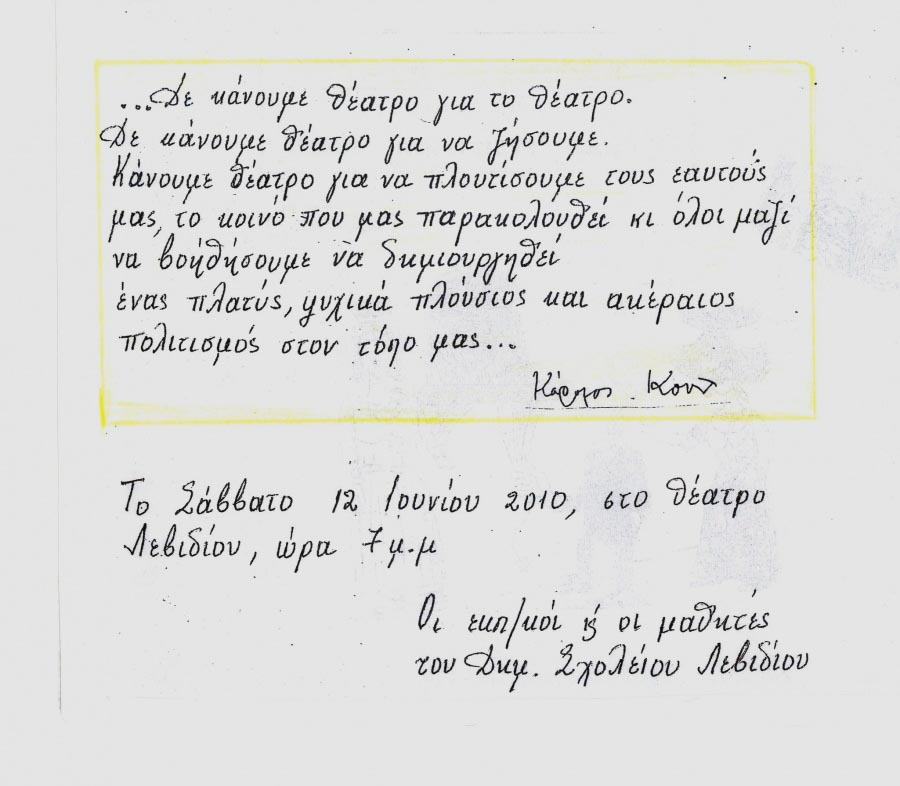 ...Δε κάνουμε θέατρο για το θέατρο.
Δε κάνουμε θέατρο για να ζήσουμε.
Κάνουμε θέατρο για να πλουτίσουμε τους εαυτούς
μας, το κοινό που μας παρακολουθεί κι όλοι μαζί
να βοηθήσουμε να δημιουργηθεί
ένας πλατύς, ψυχικά πλούσιος και ακέραιος
πολιτισμός στον τόπο μας...
Κάρολος Κουν
Το Σάββατο 12 Ιουνίου 2010, στο θέατρο
Λεβιδίου, ώρα 7 μ.μ
Οι εκπ/κοί ϗ οι μαθητές
του Δημ. Σχολείου Λεβιδίου